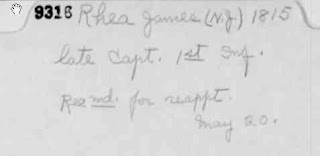 9316 Rhea James (N.J.) 1815
late Capt. 1st Inf.
Recmd. for reappt.
May 20.